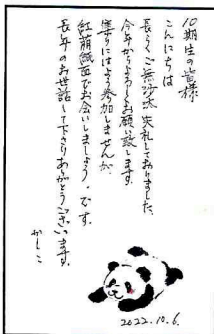 10期生の皆様
こんにちは
長らくご無沙汰失礼しておりました。
今年からよろしくお願い致します。
集りにはよう参加しませんが、
紅萌紙面でお会いしましょう。です。
長年のお世話して下さりありがとうございます。
かしこ
2022.10.6.